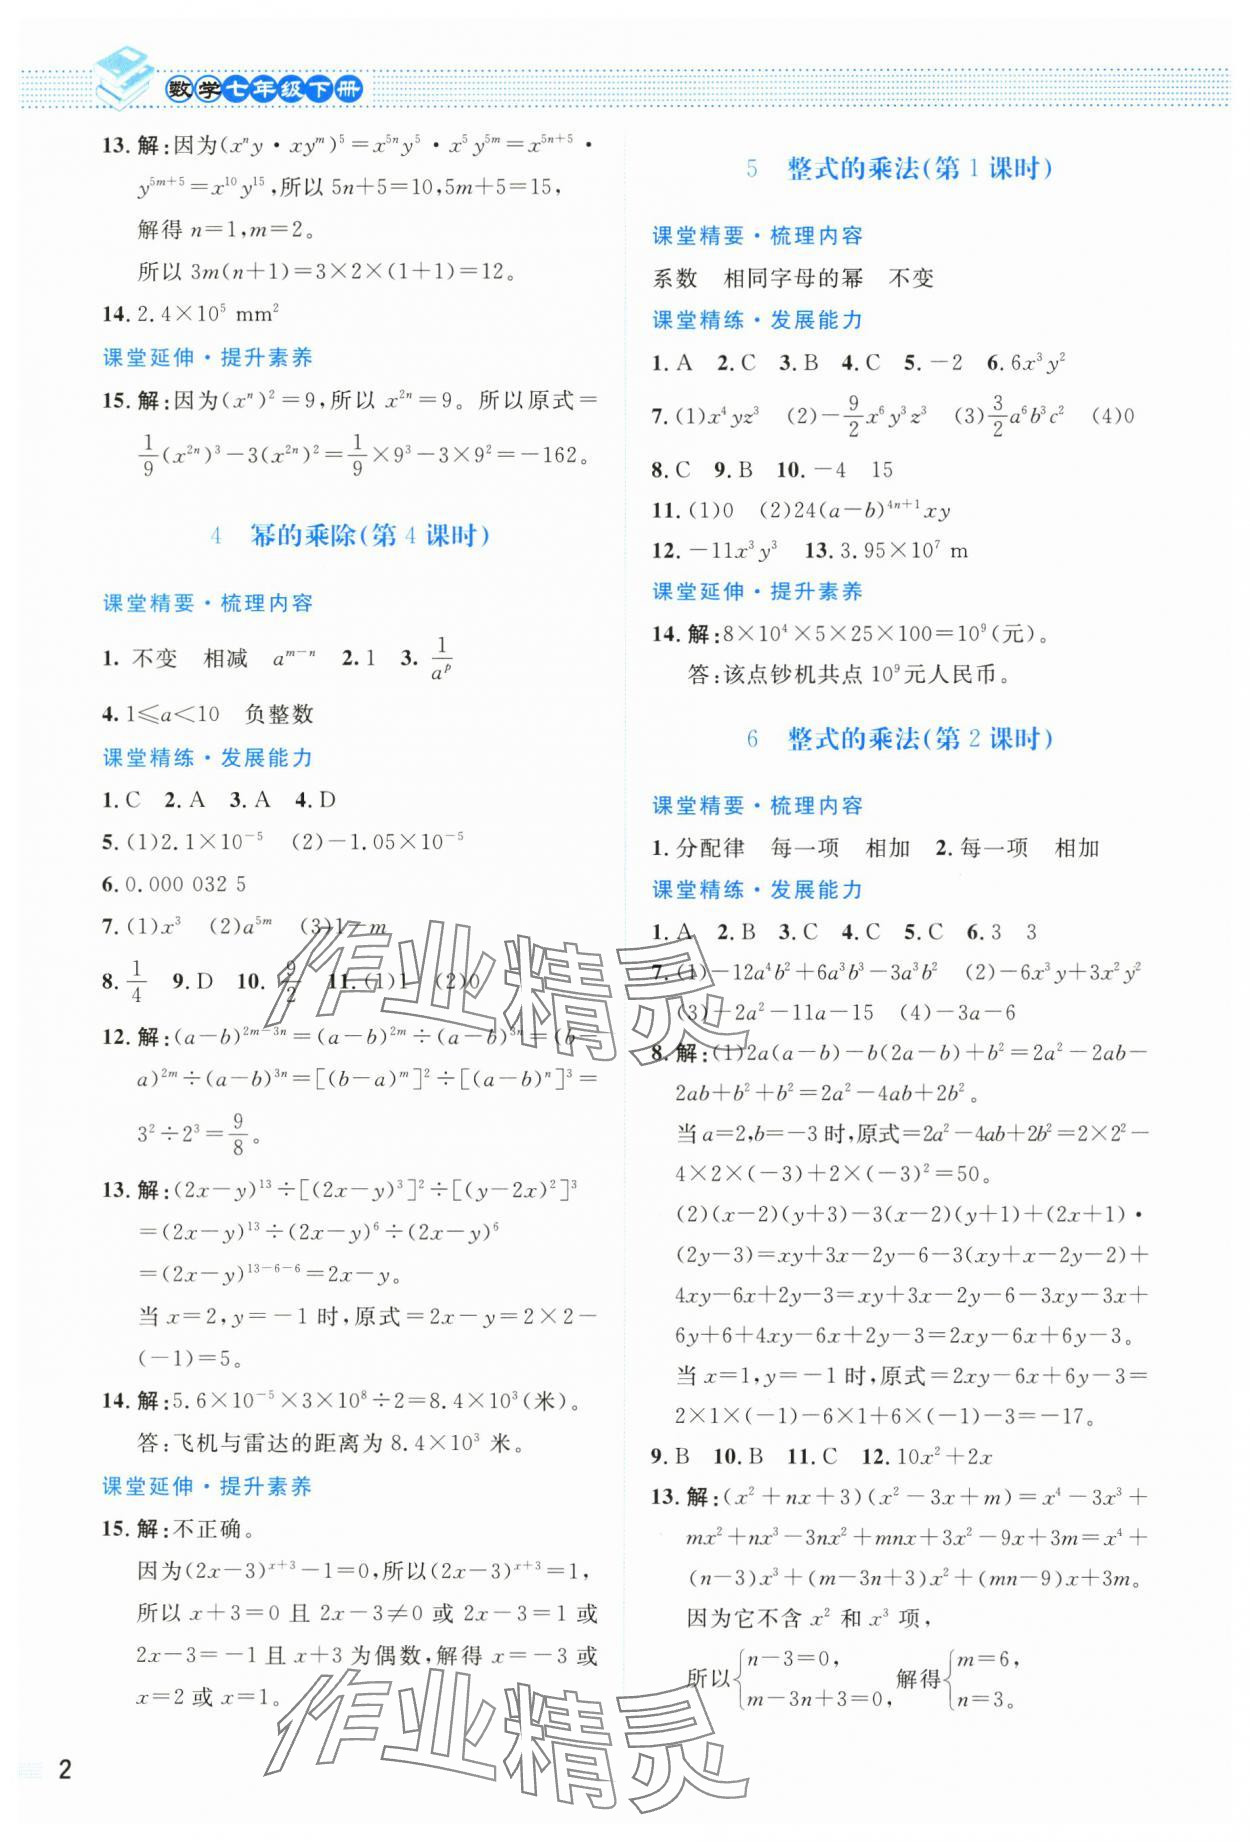 数学七年级下册
13. 解:因为(xⁿy・xyᵐ)⁵=x⁵ⁿy⁵・x⁵y⁵ᵐ=x⁵ⁿ⁺⁵・
y⁵ᵐ⁺⁵=x¹⁰y¹⁵,所以 5n+5=10,5m+5=15,
解得 n=1,m=2。
所以 3m(n+1)=3×2×(1+1)=12。
14. 2.4×10⁵ mm²
课堂延伸・提升素养
15. 解:因为(xⁿ)²=9,所以 x²ⁿ=9。所以原式=
1/9(x²ⁿ)³-3(x²ⁿ)²=1/9×9³-3×9²=-162。
4 幂的乘除(第 4 课时)
课堂精要・梳理内容
1. 不变 相减 aᵐ⁻ⁿ 2. 1 3. 1/aᵖ
4. 1≤a<10 负整数
课堂精练・发展能力
1. C 2. A 3. A 4. D
5. (1)2.1×10⁻⁵ (2)-1.05×10⁻⁵
6. 0.000 032 5
7. (1)x³ (2)a⁵ᵐ (3)1-m
8. 1/4 9. D 10. 9/2 11. (1)1 (2)0
12. 解:(a-b)²ᵐ⁻³ⁿ=(a-b)²ᵐ÷(a-b)³ⁿ=(b-
a)²ᵐ÷(a-b)³ⁿ=[(b-a)ᵐ]²÷[(a-b)ⁿ]³=
3²÷2³=9/8。
13. 解:(2x-y)¹³÷[(2x-y)³]²÷[(y-2x)²]³
=(2x-y)¹³÷(2x-y)⁶÷(2x-y)⁶
=(2x-y)¹³⁻⁶⁻⁶=2x-y。
当 x=2,y=-1 时,原式=2x-y=2×2-
(-1)=5。
14. 解:5.6×10⁻⁵×3×10⁸÷2=8.4×10³(米)。
答:飞机与雷达的距离为 8.4×10³ 米。
课堂延伸・提升素养
15. 解:不正确。
因为(2x-3)ˣ⁺³-1=0,所以(2x-3)ˣ⁺³=1,
所以 x+3=0 且 2x-3≠0 或 2x-3=1 或
2x-3=-1 且 x+3 为偶数,解得 x=-3 或
x=2 或 x=1。
5 整式的乘法(第 1 课时)
课堂精要・梳理内容
系数 相同字母的幂 不变
课堂精练・发展能力
1. A 2. C 3. B 4. C 5. -2 6. 6x³y²
7. (1)x⁴yz³ (2)-9/2x⁶y³z³ (3)3/2a⁶b³c² (4)0
8. C 9. B 10. -4 15
11. (1)0 (2)24(a-b)⁴ⁿ⁺¹xy
12. -11x³y³ 13. 3.95×10⁷ m
课堂延伸・提升素养
14. 解:8×10⁴×5×25×100=10⁹(元)。
答:该点钞机共点 10⁹元人民币。
6 整式的乘法(第 2 课时)
课堂精要・梳理内容
1. 分配律 每一项 相加 2. 每一项 相加
课堂精练・发展能力
1. A 2. B 3. C 4. C 5. C 6. 3 3
7. (1)-12a⁴b²+6a³b³-3a³b² (2)-6x³y+3x²y²
(3)-2a²-11a-15 (4)-3a-6
8. 解:(1)2a(a-b)-b(2a-b)+b²=2a²-2ab-
2ab+b²+b²=2a²-4ab+2b²。
当 a=2,b=-3 时,原式=2a²-4ab+2b²=2×2²-
4×2×(-3)+2×(-3)²=50。
(2)(x-2)(y+3)-3(x-2)(y+1)+(2x+1)・
(2y-3)=xy+3x-2y-6-3(xy+x-2y-2)+
4xy-6x+2y-3=xy+3x-2y-6-3xy-3x+
6y+6+4xy-6x+2y-3=2xy-6x+6y-3。
当 x=1,y=-1 时,原式=2xy-6x+6y-3=
2×1×(-1)-6×1+6×(-1)-3=-17。
9. B 10. B 11. C 12. 10x²+2x
13. 解:(x²+nx+3)(x²-3x+m)=x⁴-3x³+
mx²+nx³-3nx²+mnx+3x²-9x+3m=x⁴+
(n-3)x³+(m-3n+3)x²+(mn-9)x+3m。
因为它不含 x² 和 x³ 项,
所以{n-3=0, m-3n+3=0, 解得{m=6, n=3。
作业精灵
作业精灵
2